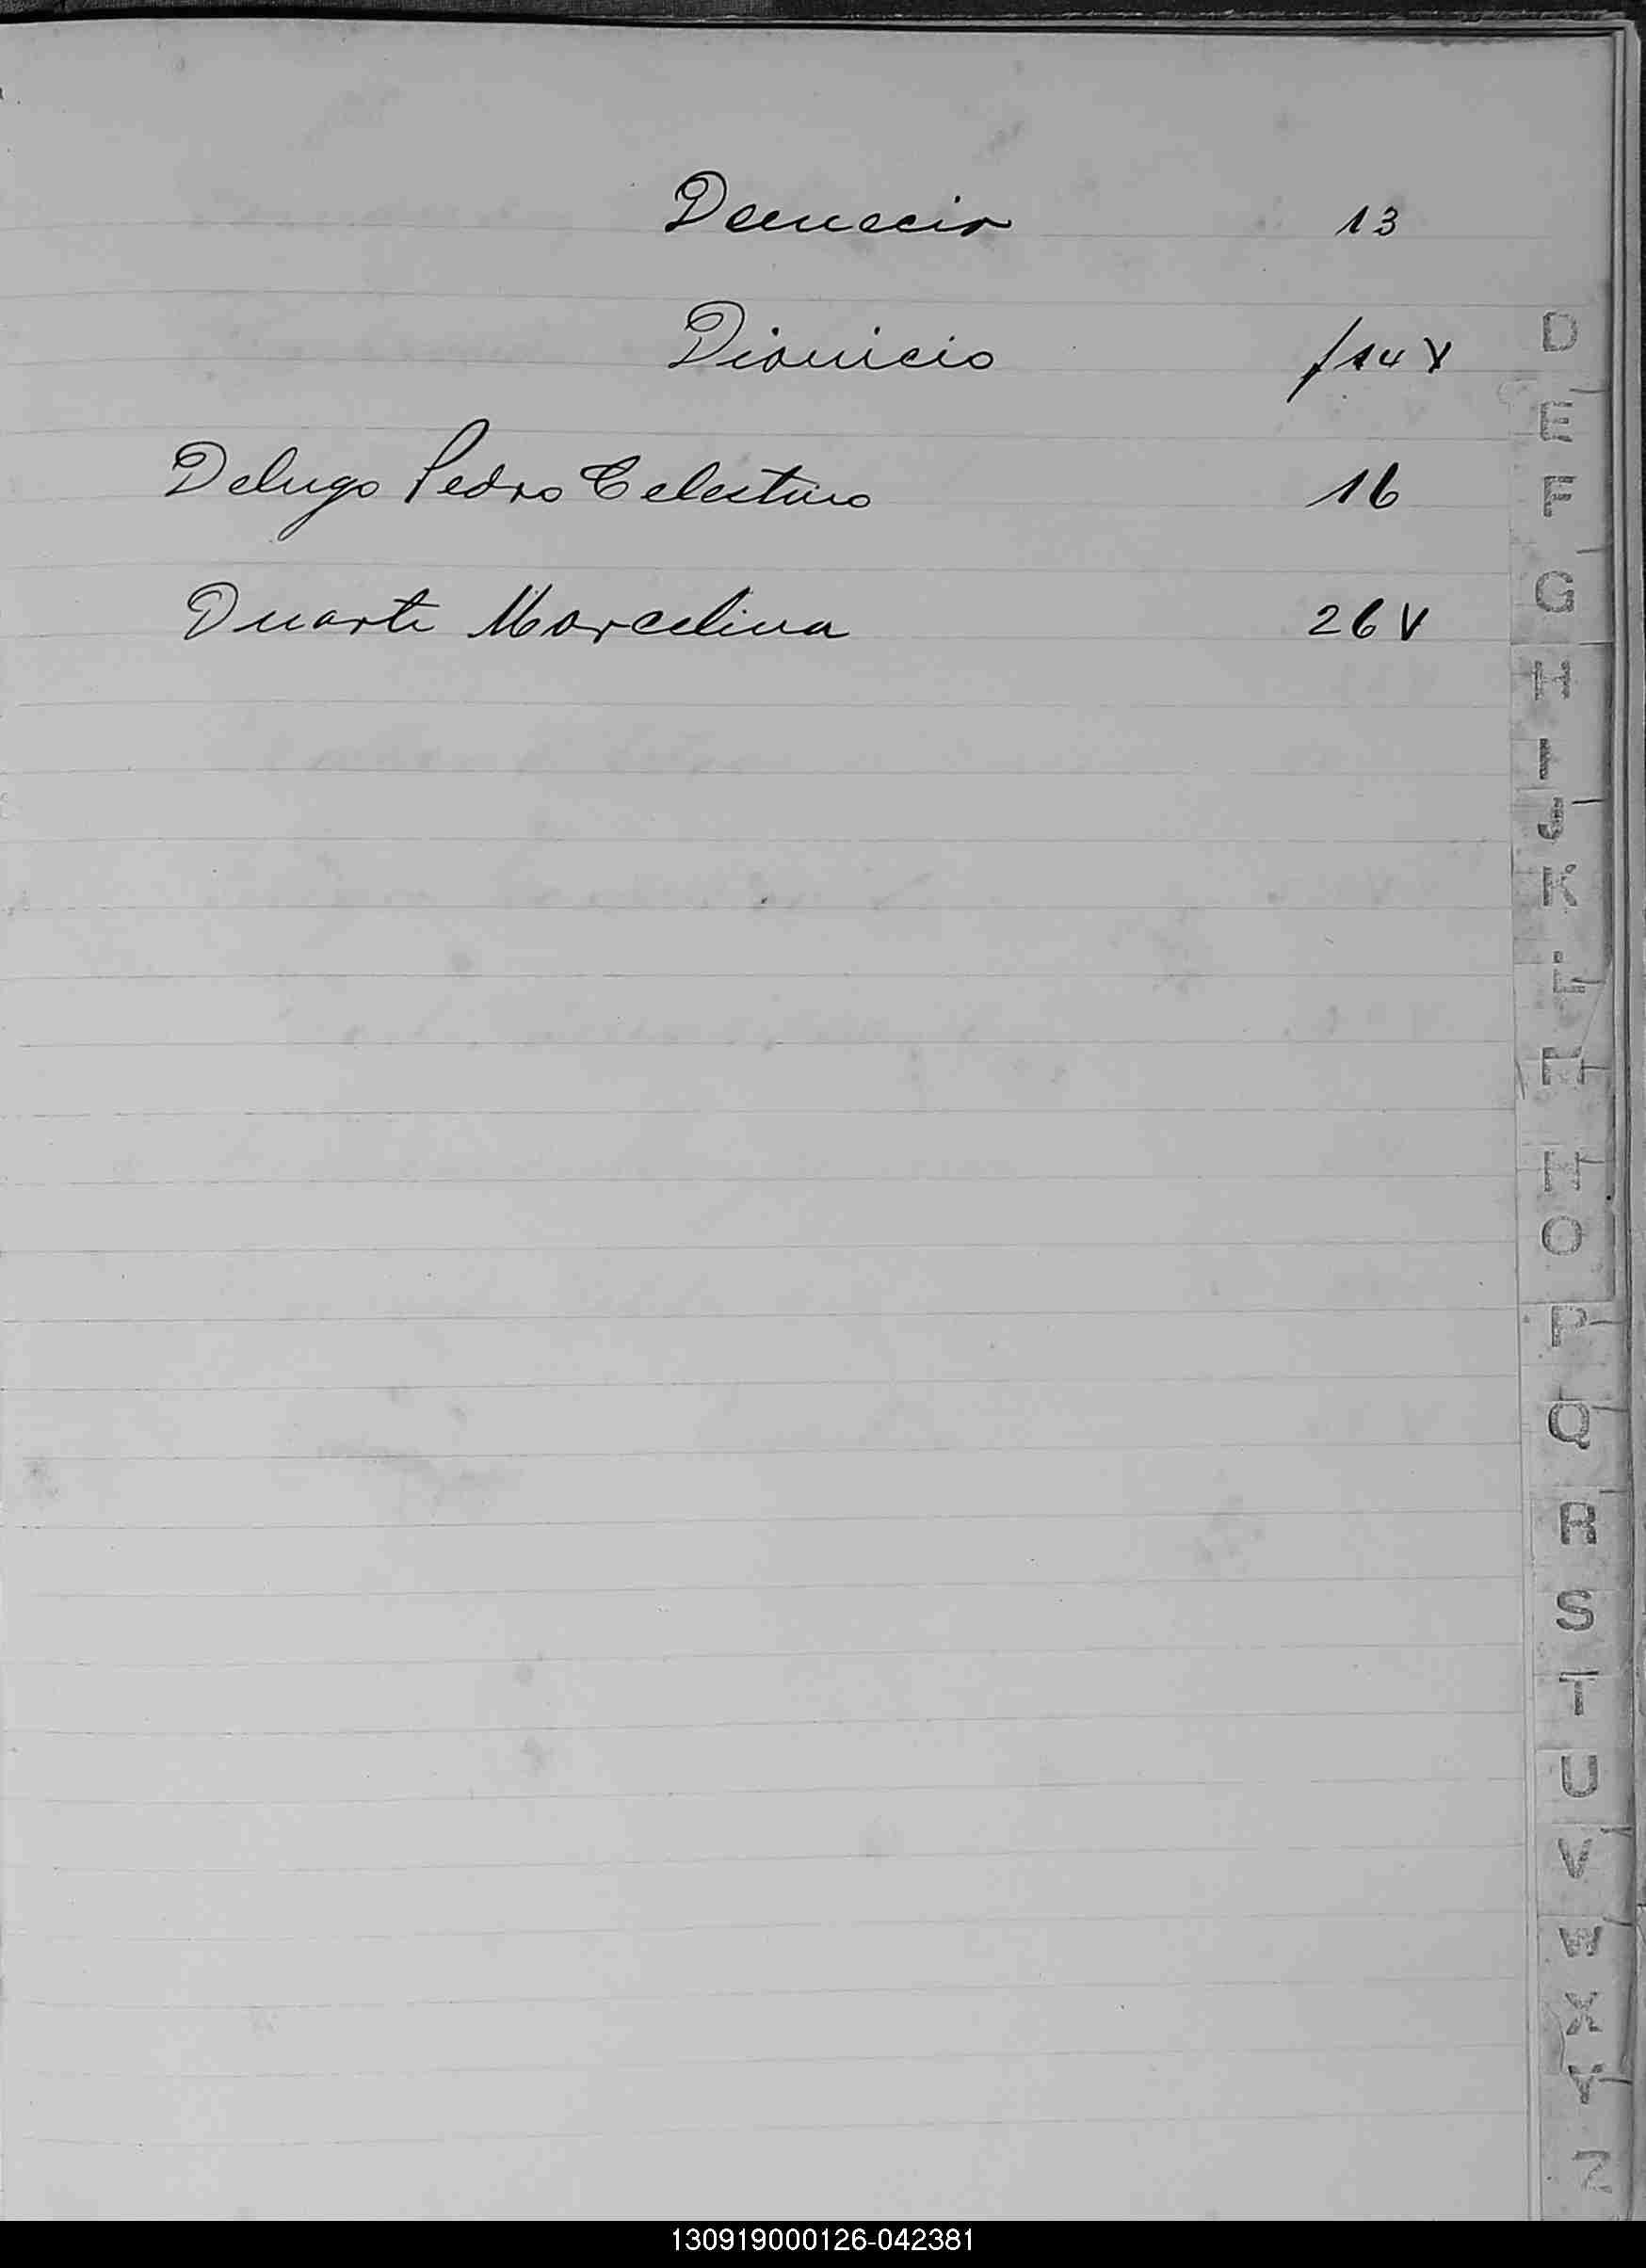 Demecio 13
Dionicio /14 V
Delugo Pedro Celestino 16
Duarte Marcelina 26 V
D
E
F
G
H
I
J
K
L
M
N
O
P
Q
R
S
T
U
V
W
X
Y
Z
130919000126-042381